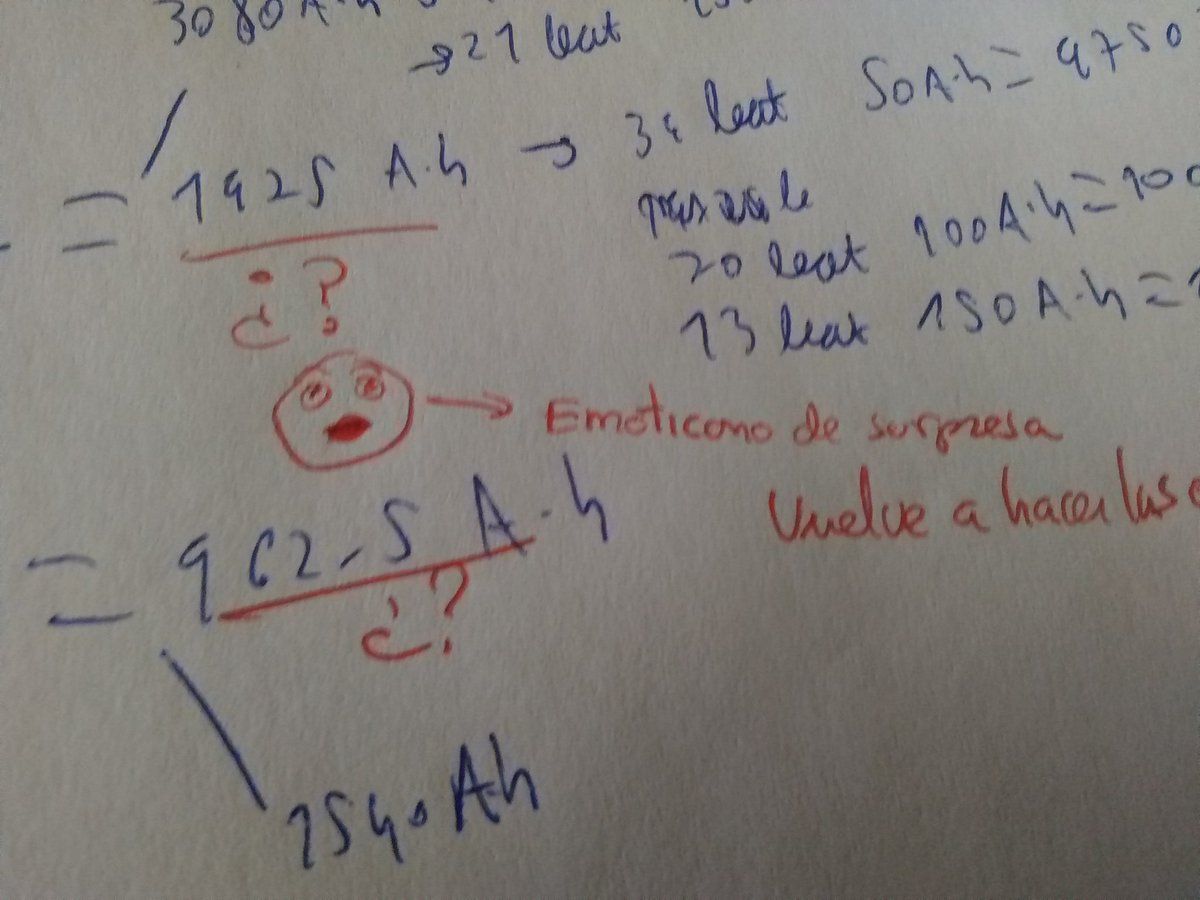 3080 A·h
→ 21 leat
= 1925 A·h → 39 leat 50A·h = 9750
20 leat 100A·h = 100
13 leat 150A·h = 1
¿?
→ Emoticono de surpresa
Vuelve a hacer las
= 962,5 A·h
¿?
1540 Ah